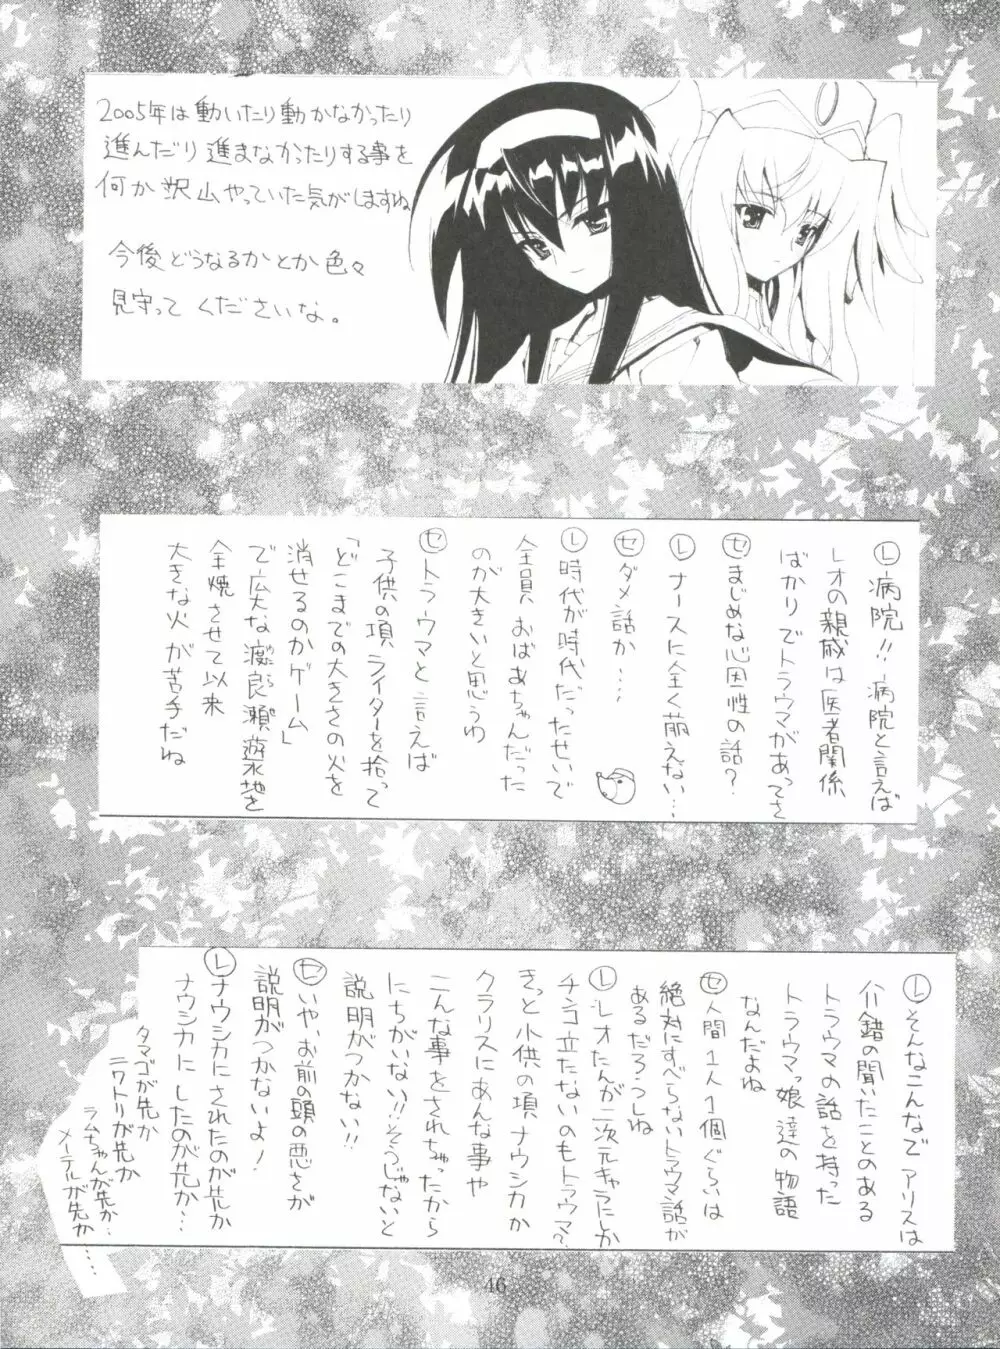 2005年は動いたり動かなかったり
進んだり進まなかったりする事を
何か沢山やっていた気がしますね
今後どうなるかとか色々
見守ってくださいな。
Ⓛ病院!!病院と言えば
レオの親戚は医者関係
ばかりでトラウマがあってさ
㋝まじめな心因性の話?
Ⓛナースに全く萌えない…
㋝ダメ話か….
Ⓛ時代が時代だったせいで
全員おばあちゃんだった
のが大きいと思うわ
㋝トラウマと言えば
子供の項ライターを拾って
「どこまでの大きさの火を
消せるのかゲーム」
で広大な渡良瀬遊水地を
全焼させて以来
大きな火が苦手だね
Ⓛそんなこんなでアリスは
介錯の聞いたことのある
トラウマの話を持った
トラウマっ娘達の物語
なんだよね
㋝人間1人1個ぐらいは
絶対にすべらないトラウマ話が
あるだろうしね
Ⓛレオたんが二次元キャラにしか
チンコ立たないのもトラウマ?
きっと小供の項ナウシカか
クラリスにあんな事や
こんな事をされちゃったから
にちがいない!!そうじゃないと
説明がつかない!!
㋝いや、お前の頭の悪さが
説明がつかないよ!
Ⓛナウシカにされたのが先か
ナウシカにしたのが先か…
タマゴが先か
ニワトリが先か
ラムちゃんが先か…
メーテルが先か…
……
46